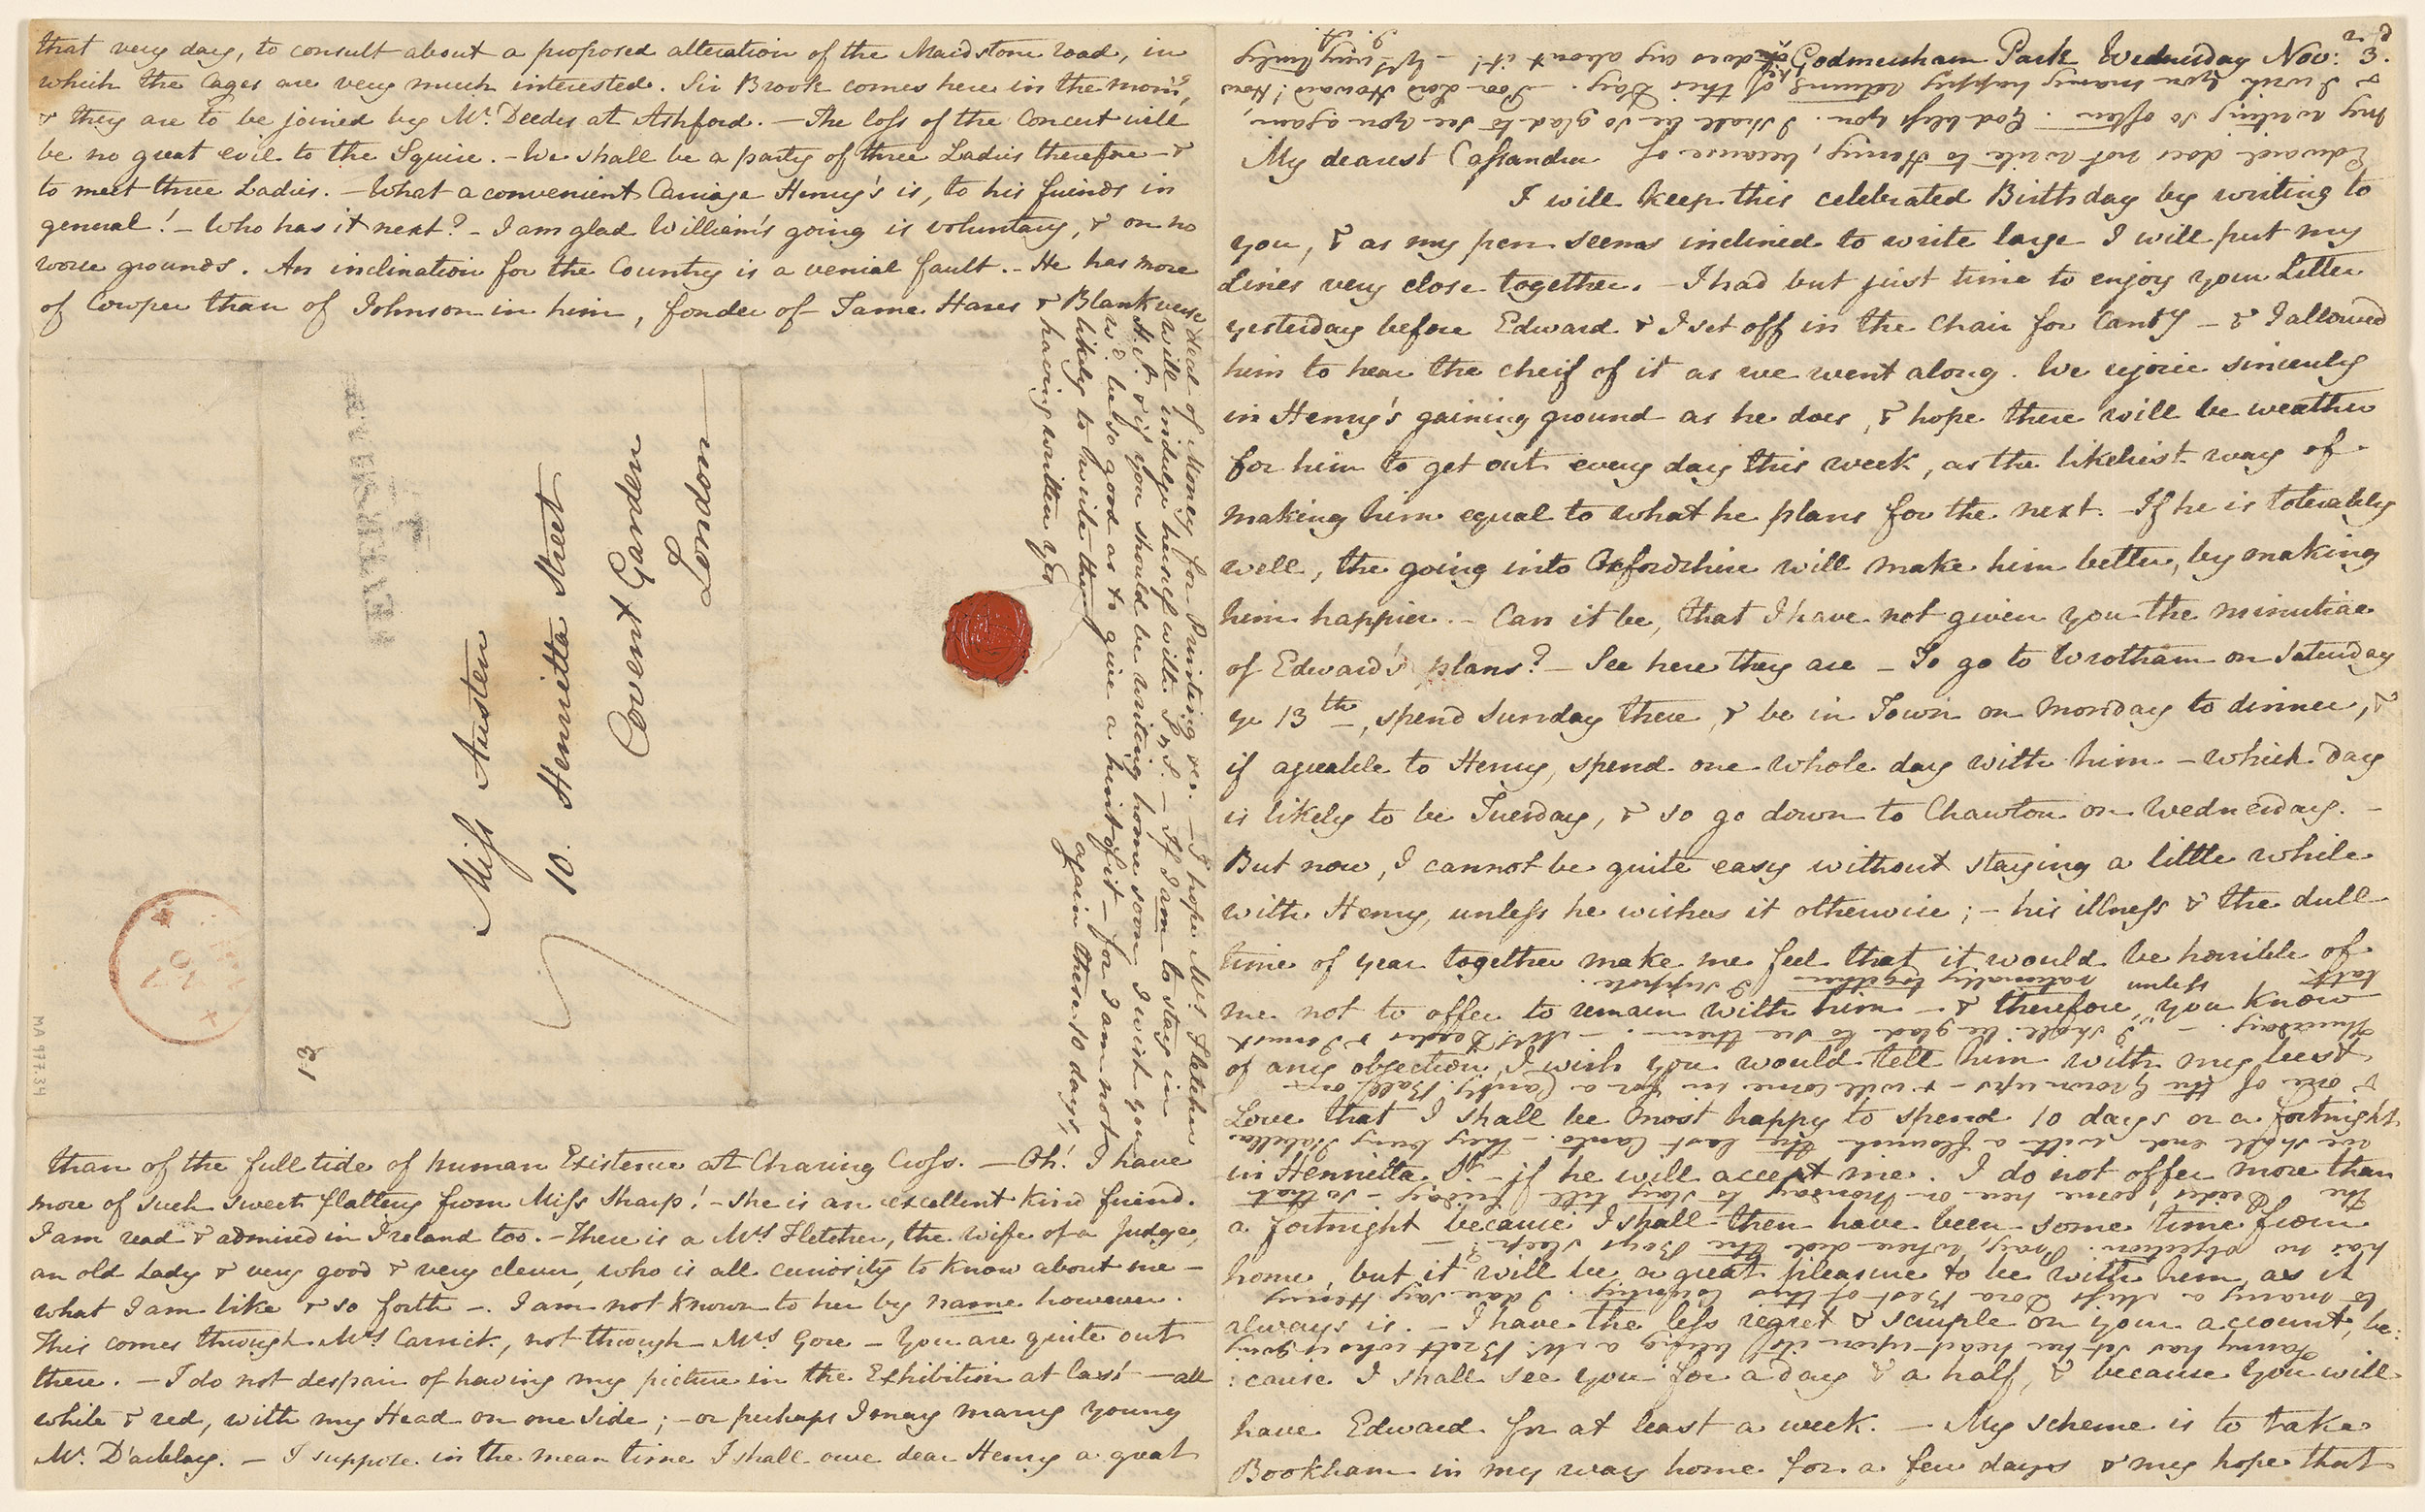 that very day, to consult about a proposed alteration of the Maidstone road, in
which the Cages are very much interested. Sir Brook comes here in the morng,
& they are to be joined by Mr. Deedes at Ashford. — The loss of the Concert will
be no great evil to the Squire. — We shall be a party of three Ladies therefore — &
to meet three Ladies. — What a convenient Carriage Henry's is, to his friends in
general! — Who has it next? — I am glad William's going is voluntary, & on no
worse grounds. An inclination for the Country is a venial fault. — He has more
of Cowper than of Johnson in him, fonder of Tame Hares & Blank verse
Miss Austen
10. Henrietta Street
Covent Garden
London
than of the full tide of human Existence at Charing Cross. — Oh! I have
more of such sweet flattery from Miss Sharp! — She is an excellent kind friend.
I am read & admired in Ireland too. — There is a Mrs Fletcher, the wife of a Judge,
an old Lady & very good & very clever, who is all curiosity to know about me —
what I am like & so forth —. I am not known to her by name however.
This comes through Mrs Carrick, not through Mrs Gore — You are quite out
there. — I do not despair of having my picture in the Exhibition at last — all
white & red, with my Head on one Side; — or perhaps I may marry young
Mr. D'arblay. — I suppose in the mean time I shall owe dear Henry a great
deal of Money for Printing &c. — I hope Mrs Fletcher
will indulge herself with S & S. — If I am to stay in
H. St. & if you should be writing home soon I wish you
wd. be so good as to give a hint of it — for I am not
likely to write there again these 10 days,
having written yesy.
12
MA 977.34
Godmersham Park Wednesday Nov: 3d.
My dearest Cassandra
I will keep this celebrated Birthday by writing to
you, & as my pen seems inclined to write large I will put my
Lines very close together. — I had but just time to enjoy your Letter
yesterday before Edward & I set off in the Chair for Canty — & I allowed
him to hear the cheif of it as we went along. We rejoice sincerely
in Henry's gaining ground as he does, & hope there will be weather
for him to get out every day this week, as the likeliest way of
making him equal to what he plans for the next. — If he is tolerably
well, the going into Oxfordshire will make him better, by making
him happier. — Can it be, that I have not given you the minutiae
of Edward's plans? — See here they are — To go to Wrotham on Saturday
ye 13th, spend Sunday there, & be in Town on Monday to dinner, &
if agreable to Henry, spend one whole day with him — which day
is likely to be Tuesday, & so go down to Chawton on Wednesday. —
But now, I cannot be quite easy without staying a little while
with Henry, unless he wishes it otherwise; — his illness & the dull
time of year together make me feel that it would be horrible of
me not to offer to remain with him — & therefore, unless you know
of any objection, I wish you would tell him with my best
Love that I shall be most happy to spend 10 days or a fortnight
in Henrietta St. — if he will accept me. I do not offer more than
a fortnight because I shall then have been some time from
home, but it will be a great pleasure to be with him, as it
always is. — I have the less regret & scruple on your account, be:
:cause I shall see you for a day & a half, & because You will
have Edward for at least a week. — My scheme is to take
Bookham in my way home for a few days & my hope that
Fanny has set her heart upon its being a Mr. Brett who is going
to marry a Miss Dora Best of this Country. I dare say Henry
has no objection. Pray, where did the Boys sleep? —
The Deedes' come here on Monday to stay till friday — so that
we shall end with a flourish the last Canto. — They bring Isabella
& one of the Grown ups — & will come in for a Canty Ball on
Thursday. — I shall be glad to see them. — Mrs. Deedes & I must
talk rationally together I suppose.
Edward does not write to Henry, because of
my writing so often. God bless you. I shall be so glad to see you again,
& I wish you many happy returns of this Day. — Poor Lord Howard! How
he does cry about it! — Yrs very truly
J. A.